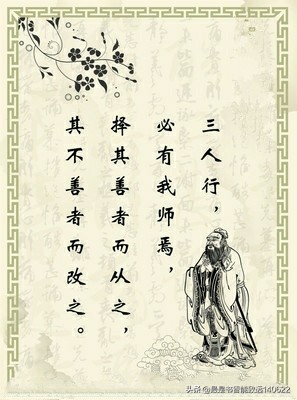 三人行，
必有我师焉，
择其善者而从之，
其不善者而改之。
头条 @最是书香能致远140622